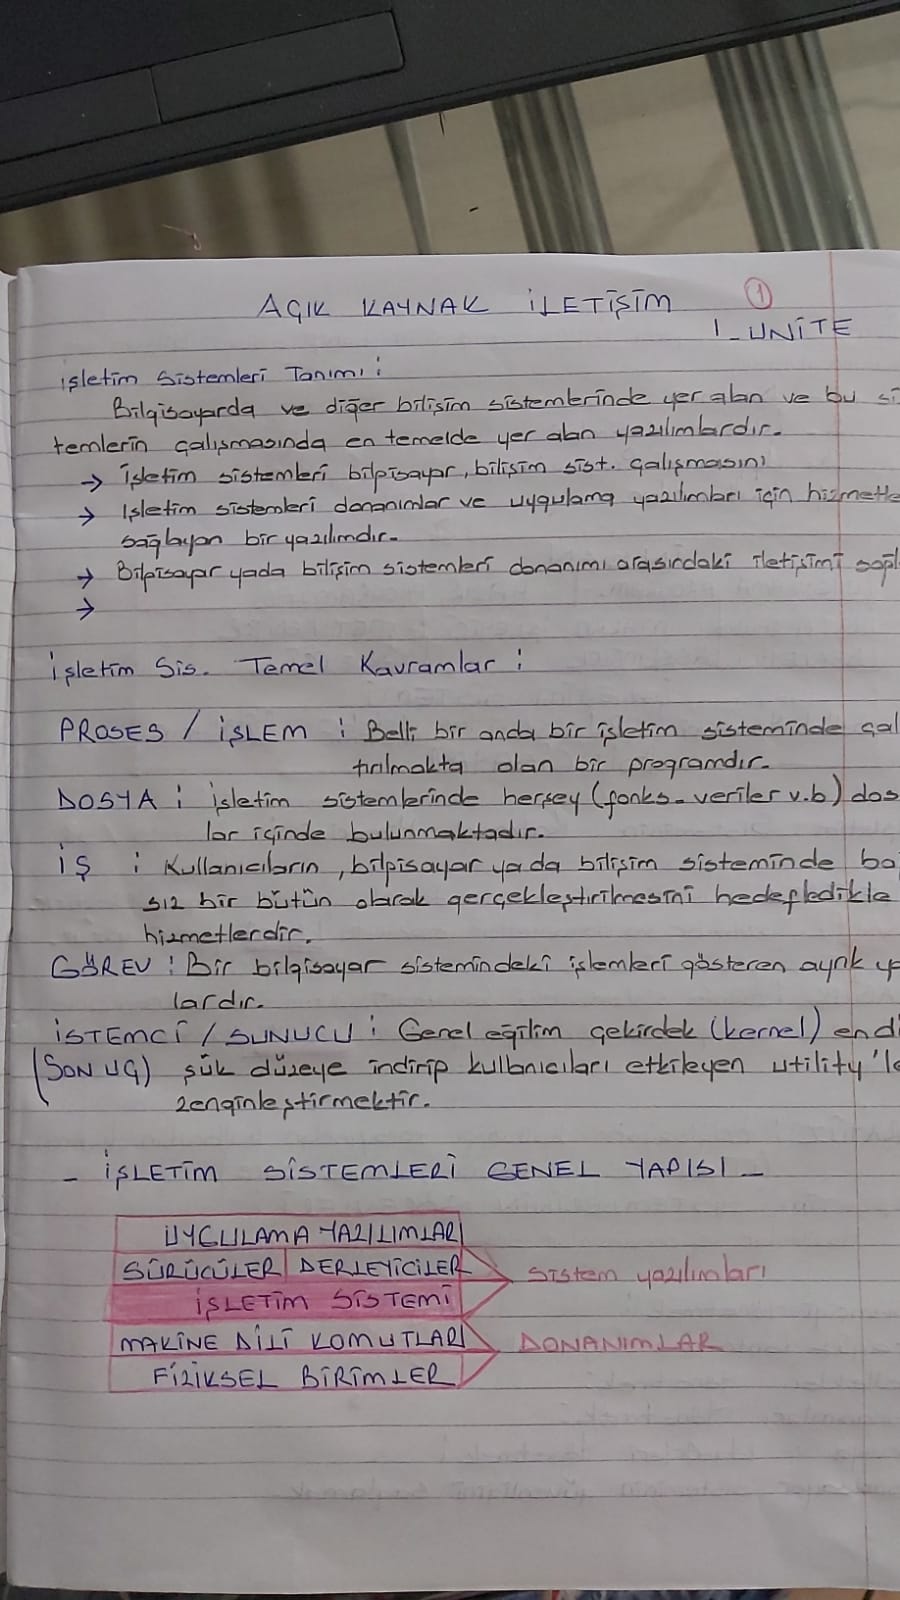 AÇIK KAYNAK İLETİŞİM 1
1_ÜNİTE
işletim Sistemleri Tanımı :
Bilgisayarda ve diğer bilişim sistemlerinde yer alan ve bu si
temlerin çalışmasında en temelde yer alan yazılımlardır.
→ İşletim sistemleri bilgisayar, bilişim sist. çalışmasını
→ İşletim sistemleri donanımlar ve uygulama yazılımları için hizmetle
sağlayan bir yazılımdır.
→ Bilgisayar yada bilişim sistemleri donanımı arasındaki iletişimi sağl
→
İşletim Sis. Temel Kavramlar :
PROSES / İŞLEM : Belli bir anda bir işletim sisteminde çal
tırılmakta olan bir programdır.
DOSYA : işletim sistemlerinde herşey (fonks. veriler v.b) dos
lar içinde bulunmaktadır.
İŞ : Kullanıcıların, bilgisayar ya da bilişim sisteminde ba
sız bir bütün olarak gerçekleştirilmesini hedefledikle
hizmetlerdir.
GÖREV : Bir bilgisayar sistemindeki işlemleri gösteren ayrık ya
lardır.
İSTEMCİ / SUNUCU : Genel eğilim çekirdek (kernel) end
(SON UÇ) şük düzeye indirip kullanıcıları etkileyen utility'le
zenginleştirmektir.
- İŞLETİM SİSTEMLERİ GENEL YAPISI -
UYGULAMA YAZILIMLAR
SÜRÜCÜLER DERLEYİCİLER sistem yazılımları
İŞLETİM SİSTEMİ
MAKİNE DİLİ KOMUTLARI DONANIMLAR
FİZİKSEL BİRİMLER